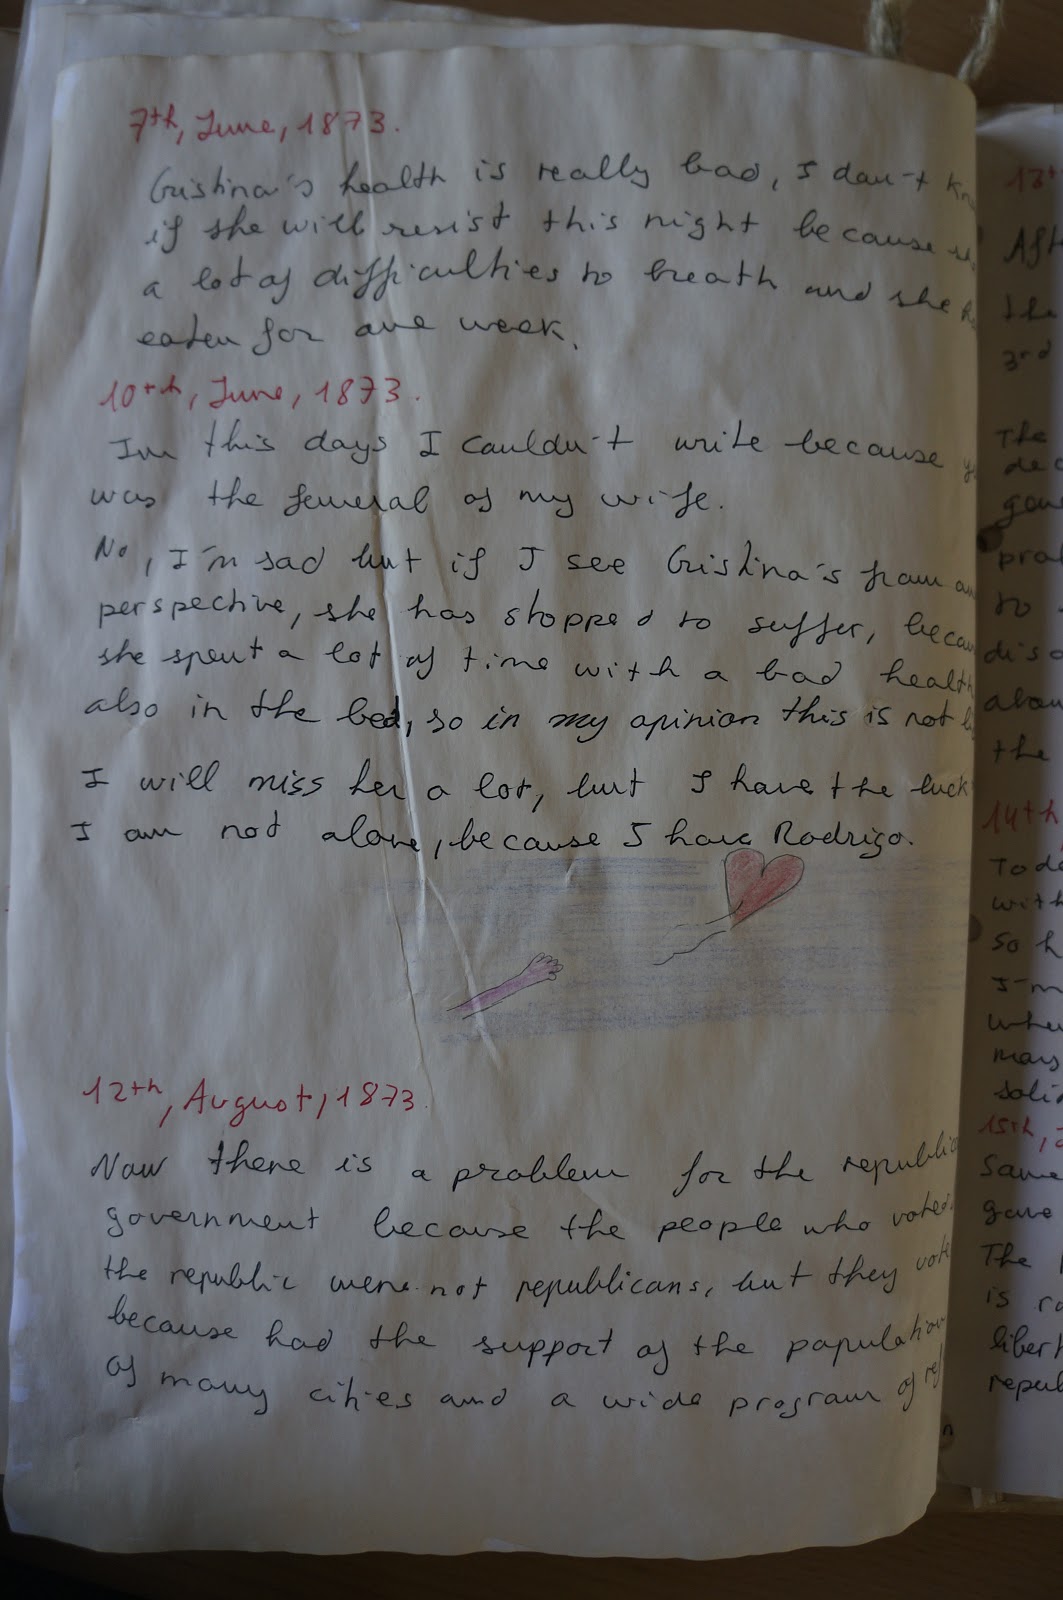 7th, June, 1873.
Cristina's health is really bad, I don't
if she will resist this night because
a lot of difficulties to breath and she
eaten for one week.
10th, June, 1873.
Im this days I couldn't write because
was the funeral of my wife.
No, I'm sad but if I see Cristina's from
perspective, she has stopped to suffer,
she spent a lot of time with a bad health
also in the bed, so in my opinion this is not
I will miss her a lot, but I have the luck
I am not alone, because I have Rodrigo.
12th, August, 1873.
Now there is a problem for the republic
government because the people who voted
the republic were not republicans, but they vote
because had the support of the population
of many cities and a wide program of
Aft
the
3rd
The
to
the
14th
with
so h
I'm
15th,
Same
gave
The
is